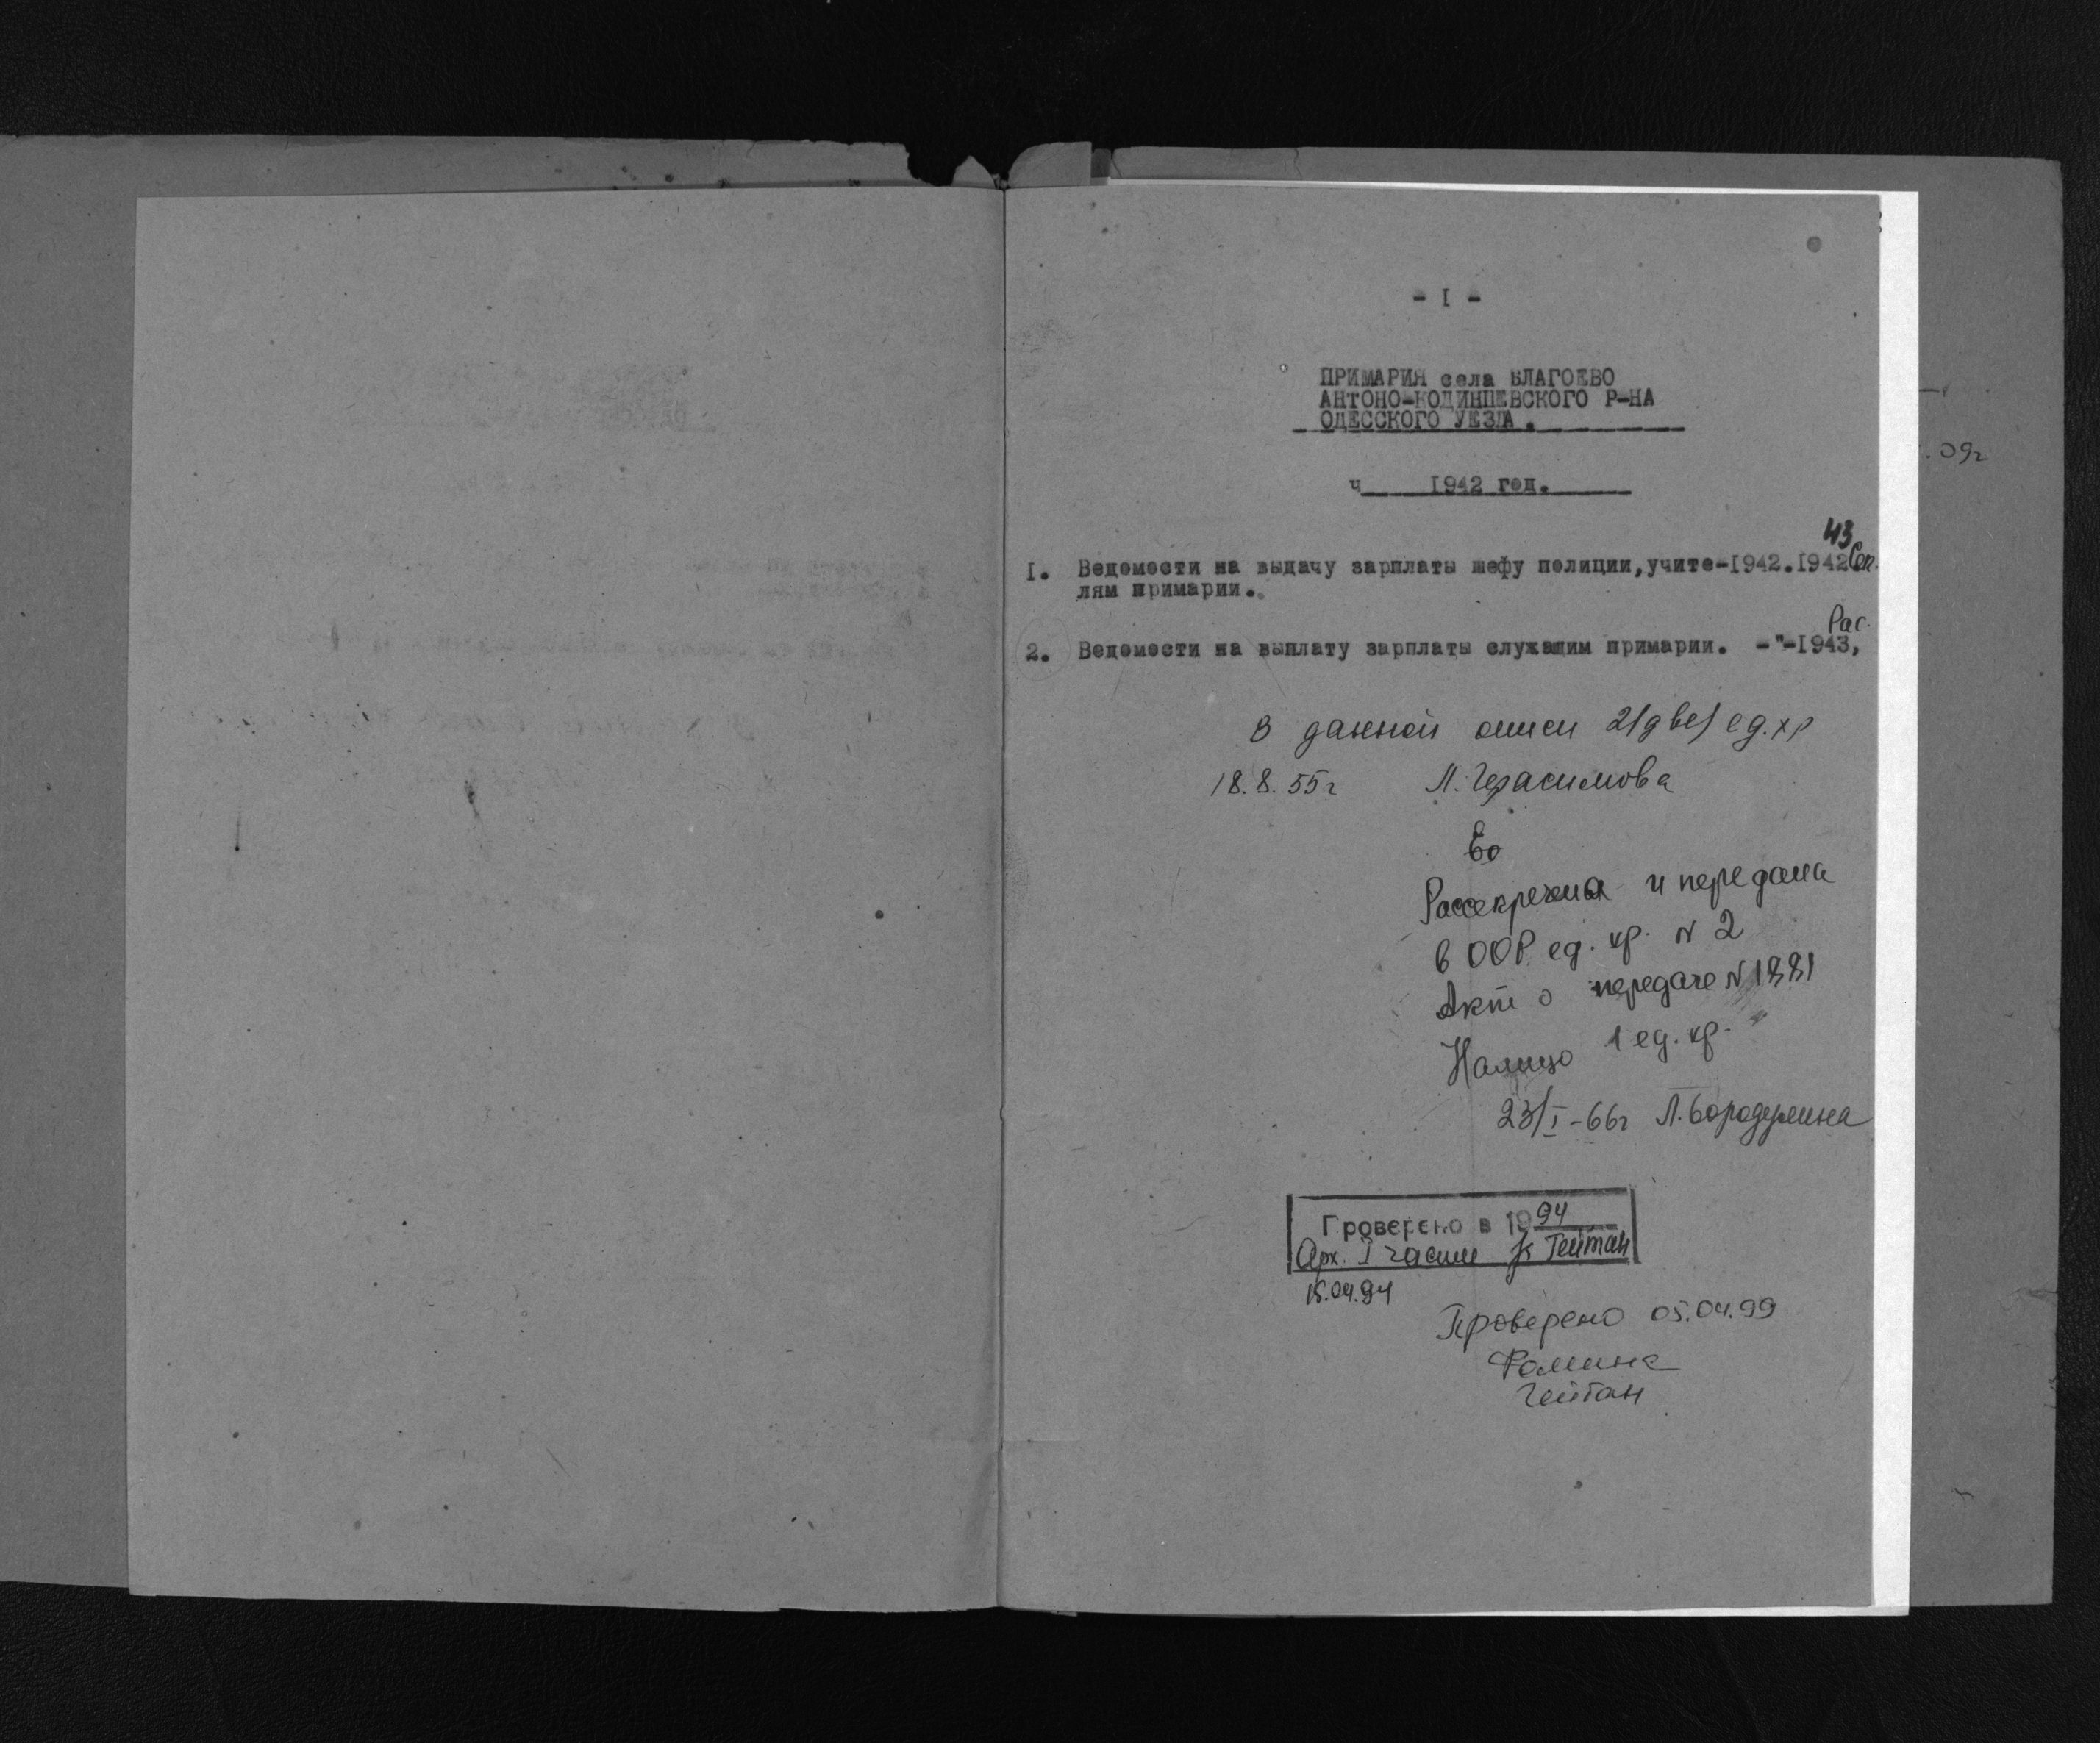 - I -
ПРИМАРИЯ села БЛАГОЕВО
АНТОНО-КОДИНЦЕВСКОГО Р-НА
ОДЕССКОГО УЕЗДА.
1942 год.
43
I. Ведомости на выдачу зарплаты шефу полиции,учите-I942.I942
лям примарии.
Рас.
2. Ведомости на выплату зарплаты служащим примарии. -"-I943,
В данной описи 2(две) ед.хр
18.8.55г Л.Герасимова
Рассекречена и передана
в ООР ед. хр. N 2
Акт о передаче N 1881
Налицо 1 ед. хр.
23/I-66г Л.Бородулина
Проверено в 1994
Арх. I Гейтан
15.04.94
Проверено 05.04.99
Гейтан
09г